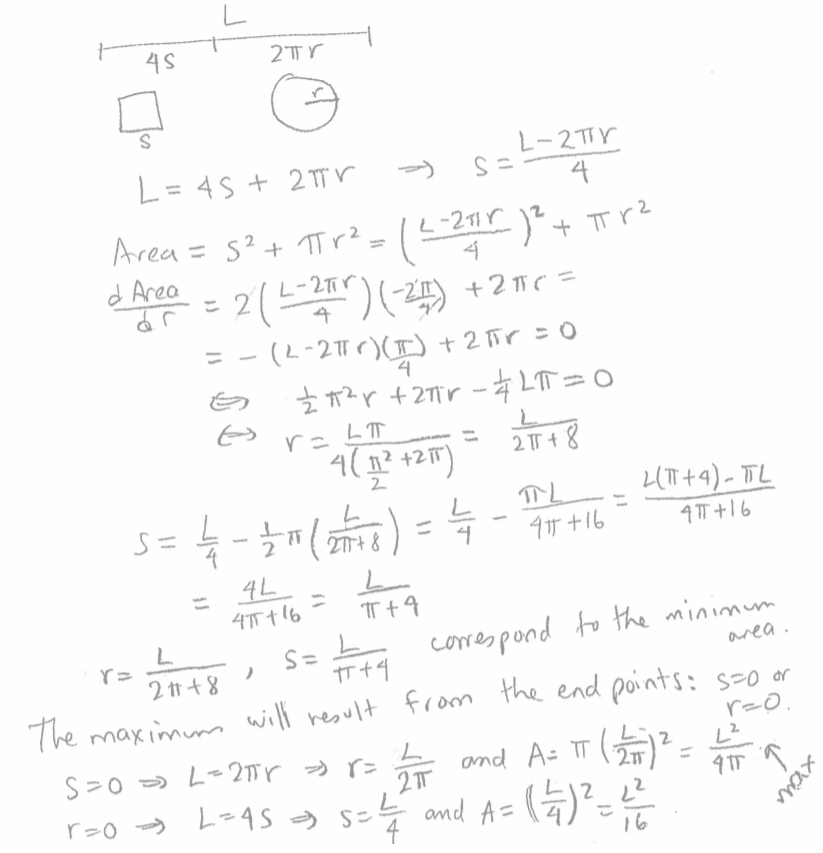 L
4S 2πr
r
S
L = 4S + 2πr ⇒ S = (L-2πr)/4
Area = S² + πr² = ((L-2πr)/4)² + πr²
d Area/dr = 2((L-2πr)/4)(-2π/4) + 2πr =
= -(L-2πr)(π/4) + 2πr = 0
⇔ ½π²r + 2πr - ¼Lπ = 0
⇔ r = Lπ/(4(π²/2 + 2π)) = L/(2π+8)
S = L/4 - ½π(L/(2π+8)) = L/4 - πL/(4π+16) = (L(π+4) - πL)/(4π+16)
= 4L/(4π+16) = L/(π+4)
r = L/(2π+8), S = L/(π+4) correspond to the minimum area.
The maximum will result from the end points: S=0 or r=0.
S=0 ⇒ L=2πr ⇒ r = L/2π and A = π(L/2π)² = L²/4π ↖ max
r=0 ⇒ L=4S ⇒ S = L/4 and A = (L/4)² = L²/16.